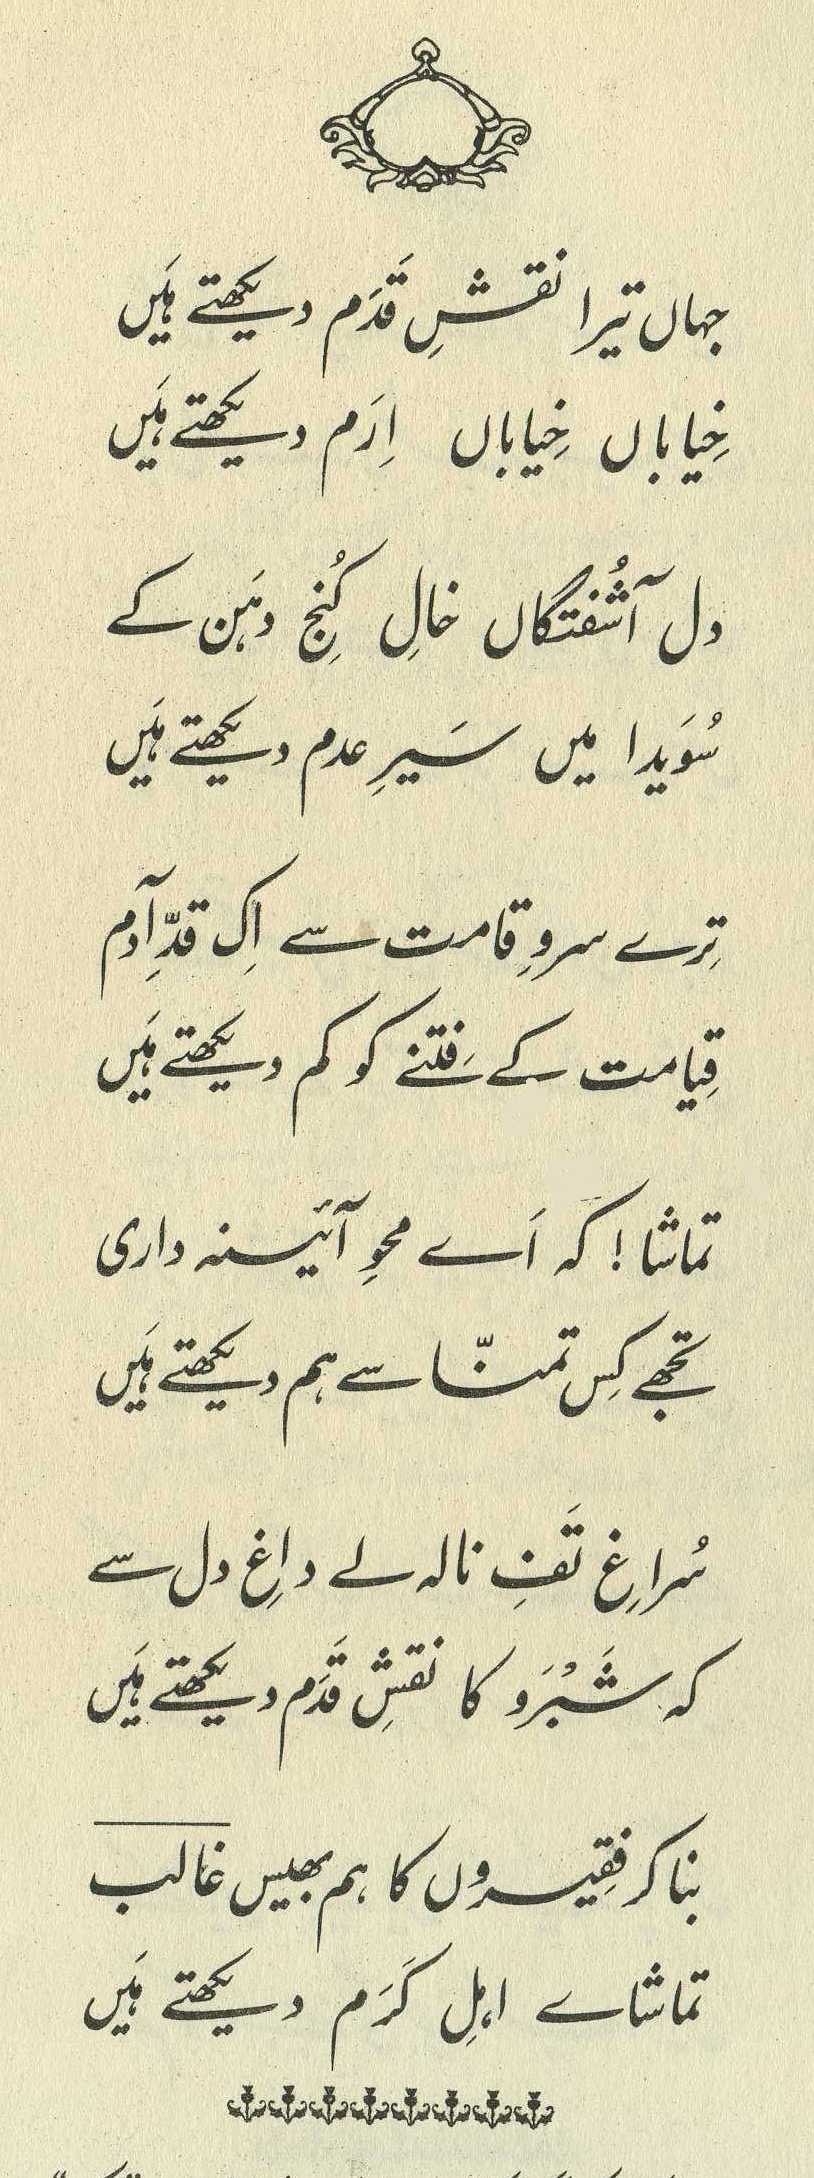 جہاں تیرا نقشِ قَدَم دیکھتے ہَیں
خِیاباں خِیاباں اِرَم دیکھتے ہَیں
دل آشُفتگاں خالِ کُنجِ دہَن کے
سُوَیدا میں سَیرِ عدم دیکھتے ہَیں
تِرے سروِ قامت سے اِک قدِّ آدم
قِیامت کے فِتنے کو کم دیکھتے ہَیں
تماشا! کہ اَے محوِ آئینہ داری
تجھے کِس تمنّا سے ہم دیکھتے ہَیں
سُراغِ تَفِ نالہ لے داغِ دل سے
کہ شَبْرَو کا نقشِ قَدَم دیکھتے ہَیں
بنا کر فقِیروں کا ہم بھیس غالب
تماشاے اہلِ کَرَم دیکھتے ہَیں